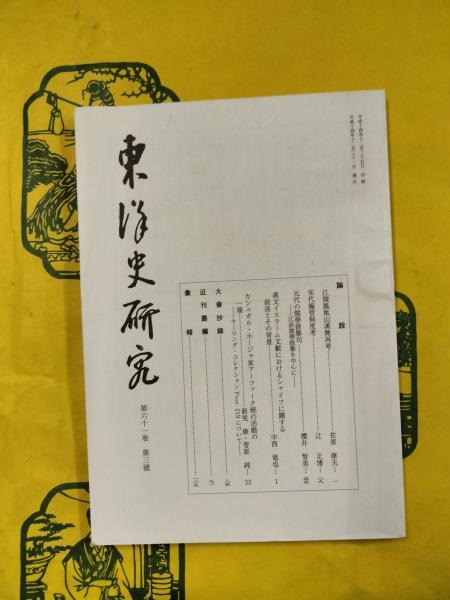 平成十四年十二月二十五日 印刷
平成十四年十二月三十一日 發行
東洋史研究
第六十一巻 第三號
論說
江陵鳳凰山漢簡再考……佐原 康夫…一
宋代編管制度考……辻 正博…元
元代の儒學提擧司……櫻井 智美…
——江浙儒學提擧を中心に——
漢文イスラーム文獻におけるシャイフに關する
敍述とその背景……中西 竜也…1
カシュガル・ホージャ家アーファーク統の活動の
一端……新免 康・菅原 純…33
——ヤーリング・コレクション Prov. 219 について——
大會抄錄
近刊叢欄
彙報